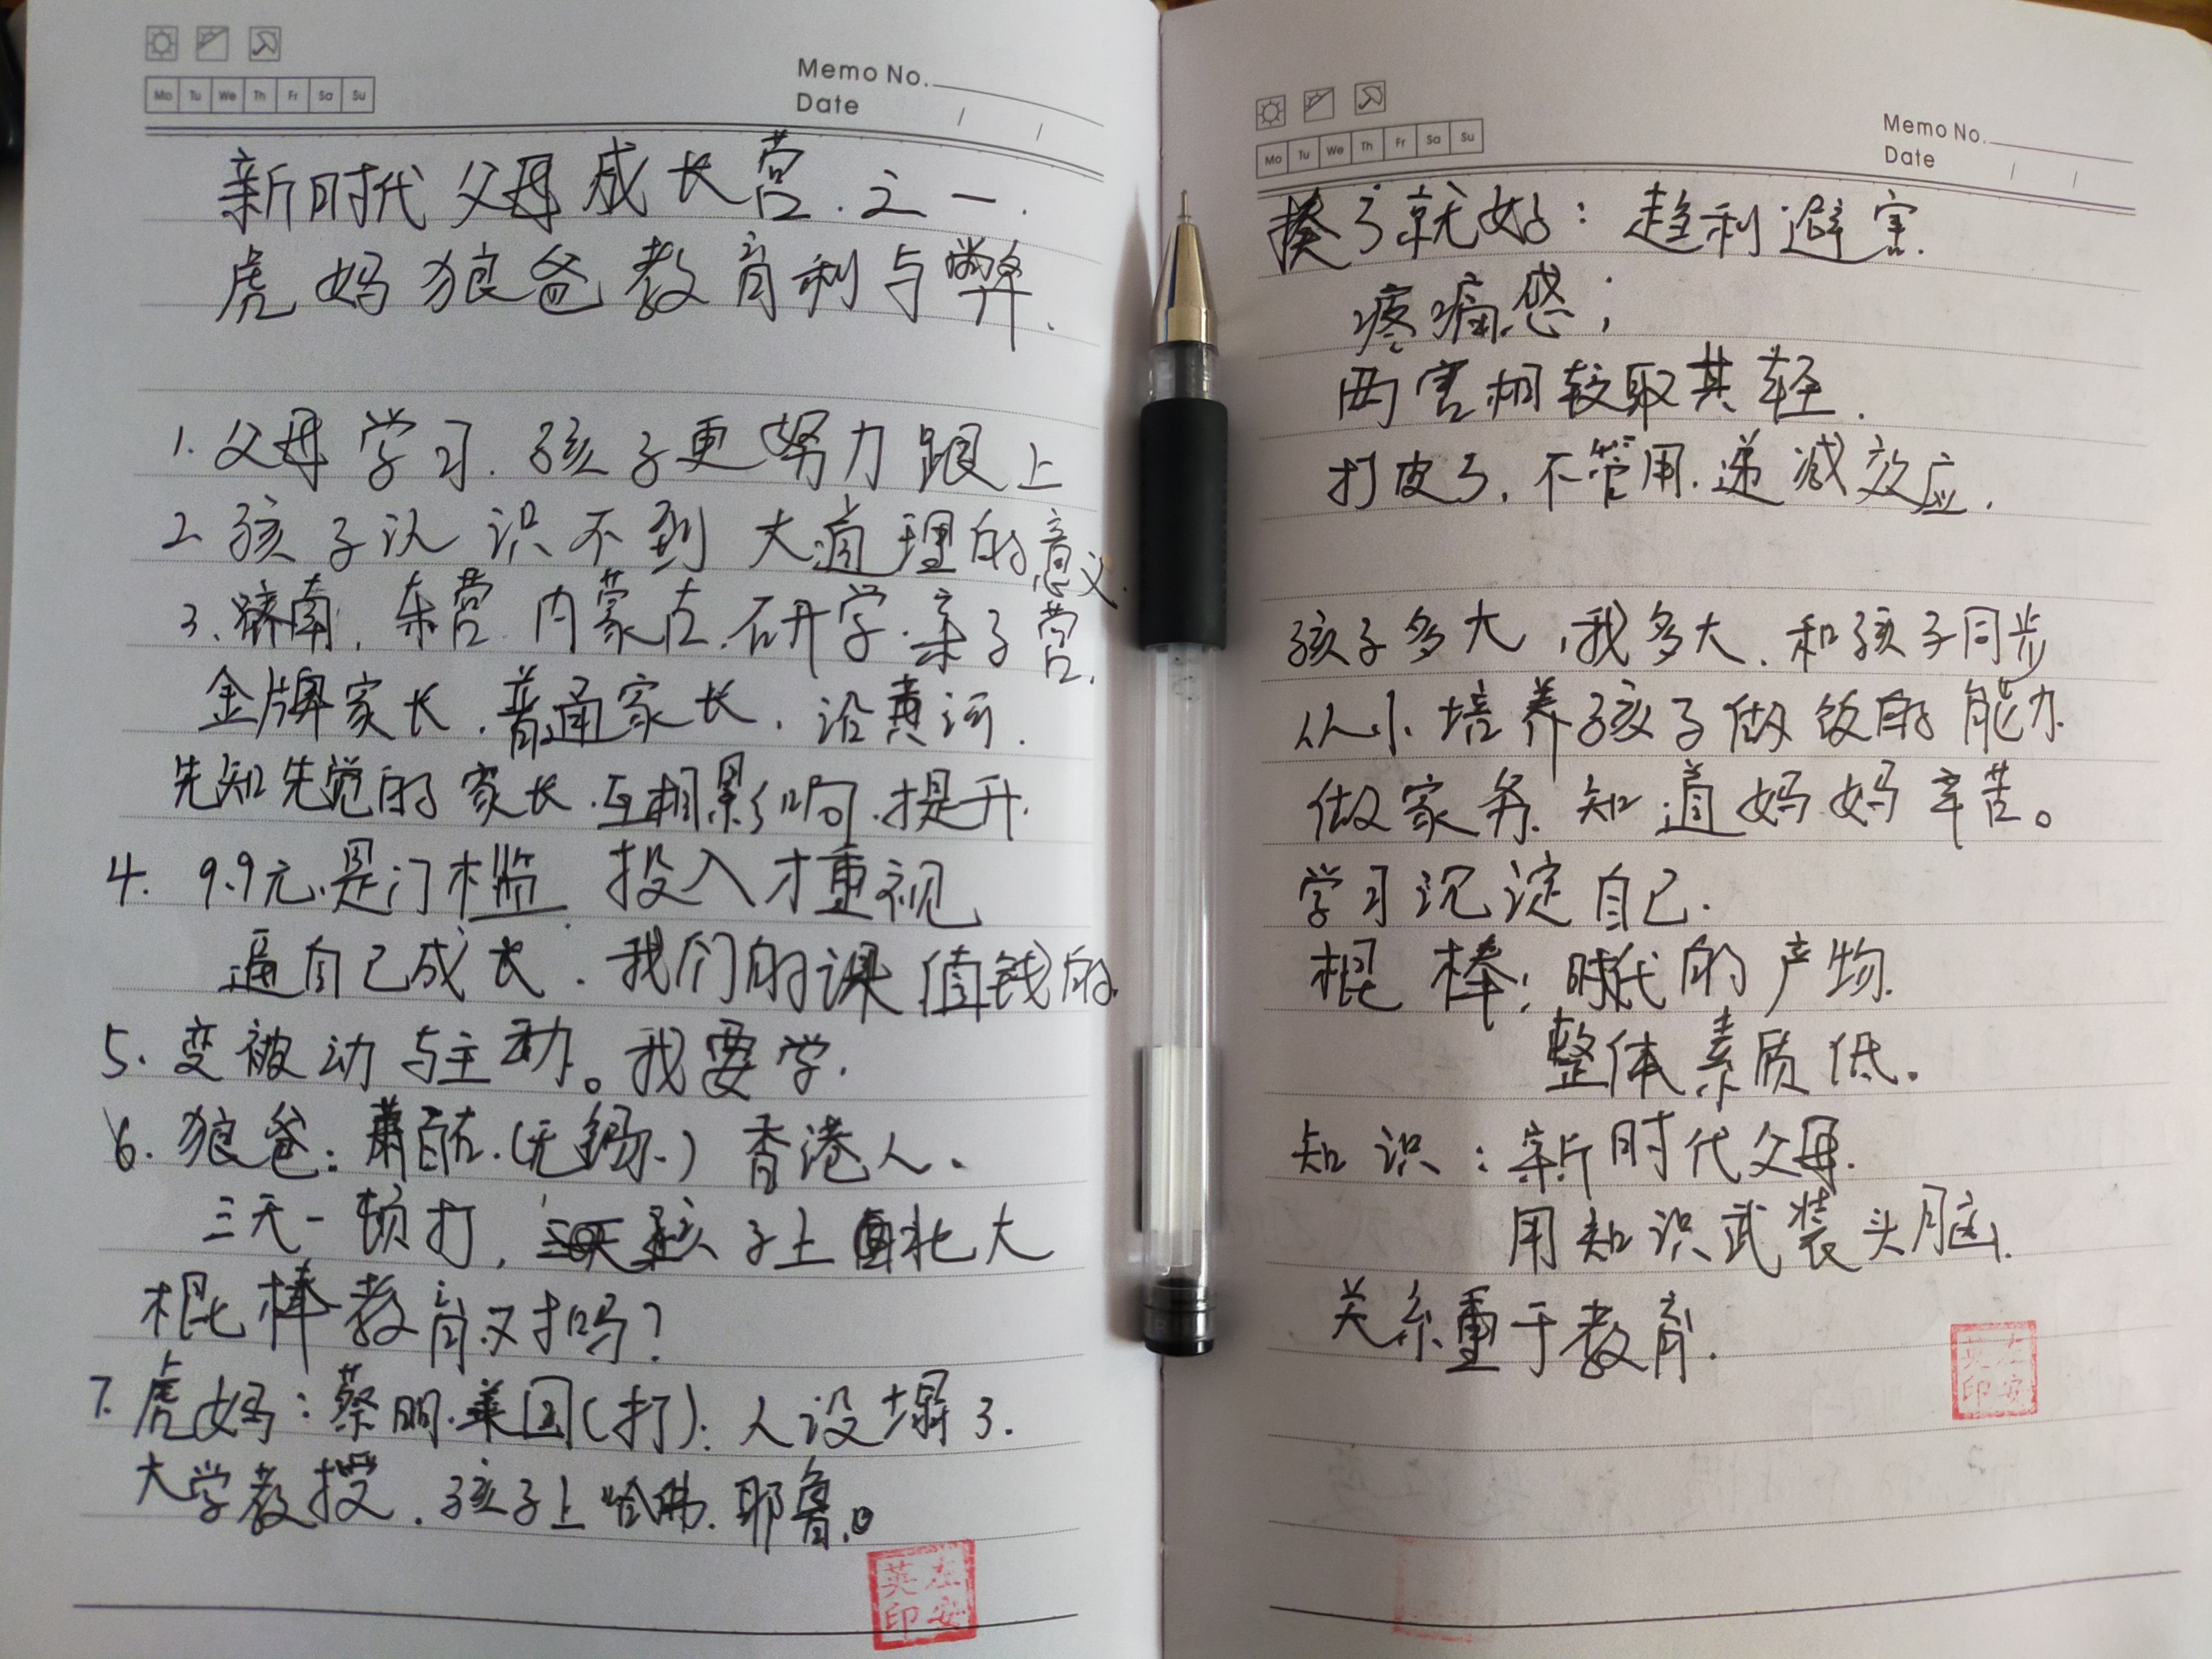 Mo Tu We Th Fr Sa Su
Memo No.
Date / /
新时代父母成长营.之一.
虎妈狼爸教育利与弊.
1.父母学习.孩子更努力跟上
2.孩子认识不到大道理的意义.
3.济南,东营.内蒙古.研学.亲子营.
金牌家长.普通家长.沿黄河.
先知先觉的家长.互相影响.提升.
4. 9.9元.是门槛.投入才重视
逼自己成长.我们的课值钱的.
5.变被动与主动。我要学.
6.狼爸:萧百佑.(无锡.)香港人、
三天一顿打,孩子上北大
棍棒教育对吗?
7.虎妈:蔡明.美国(打):人设塌了.
大学教授.孩子上哈佛.耶鲁。
英左
印安
Mo Tu We Th Fr Sa Su
Memo No.
Date / /
揍了就好:趋利避害.
疼痛感;
两害相较取其轻.
打皮了.不管用.递减效应.
孩子多大,我多大、和孩子同步
从小培养孩子做饭的能力
做家务.知道妈妈辛苦。
学习沉淀自己.
棍棒:时代的产物.
整体素质低。
知识:新时代父母.
用知识武装头脑.
关系重于教育.
英左
印安